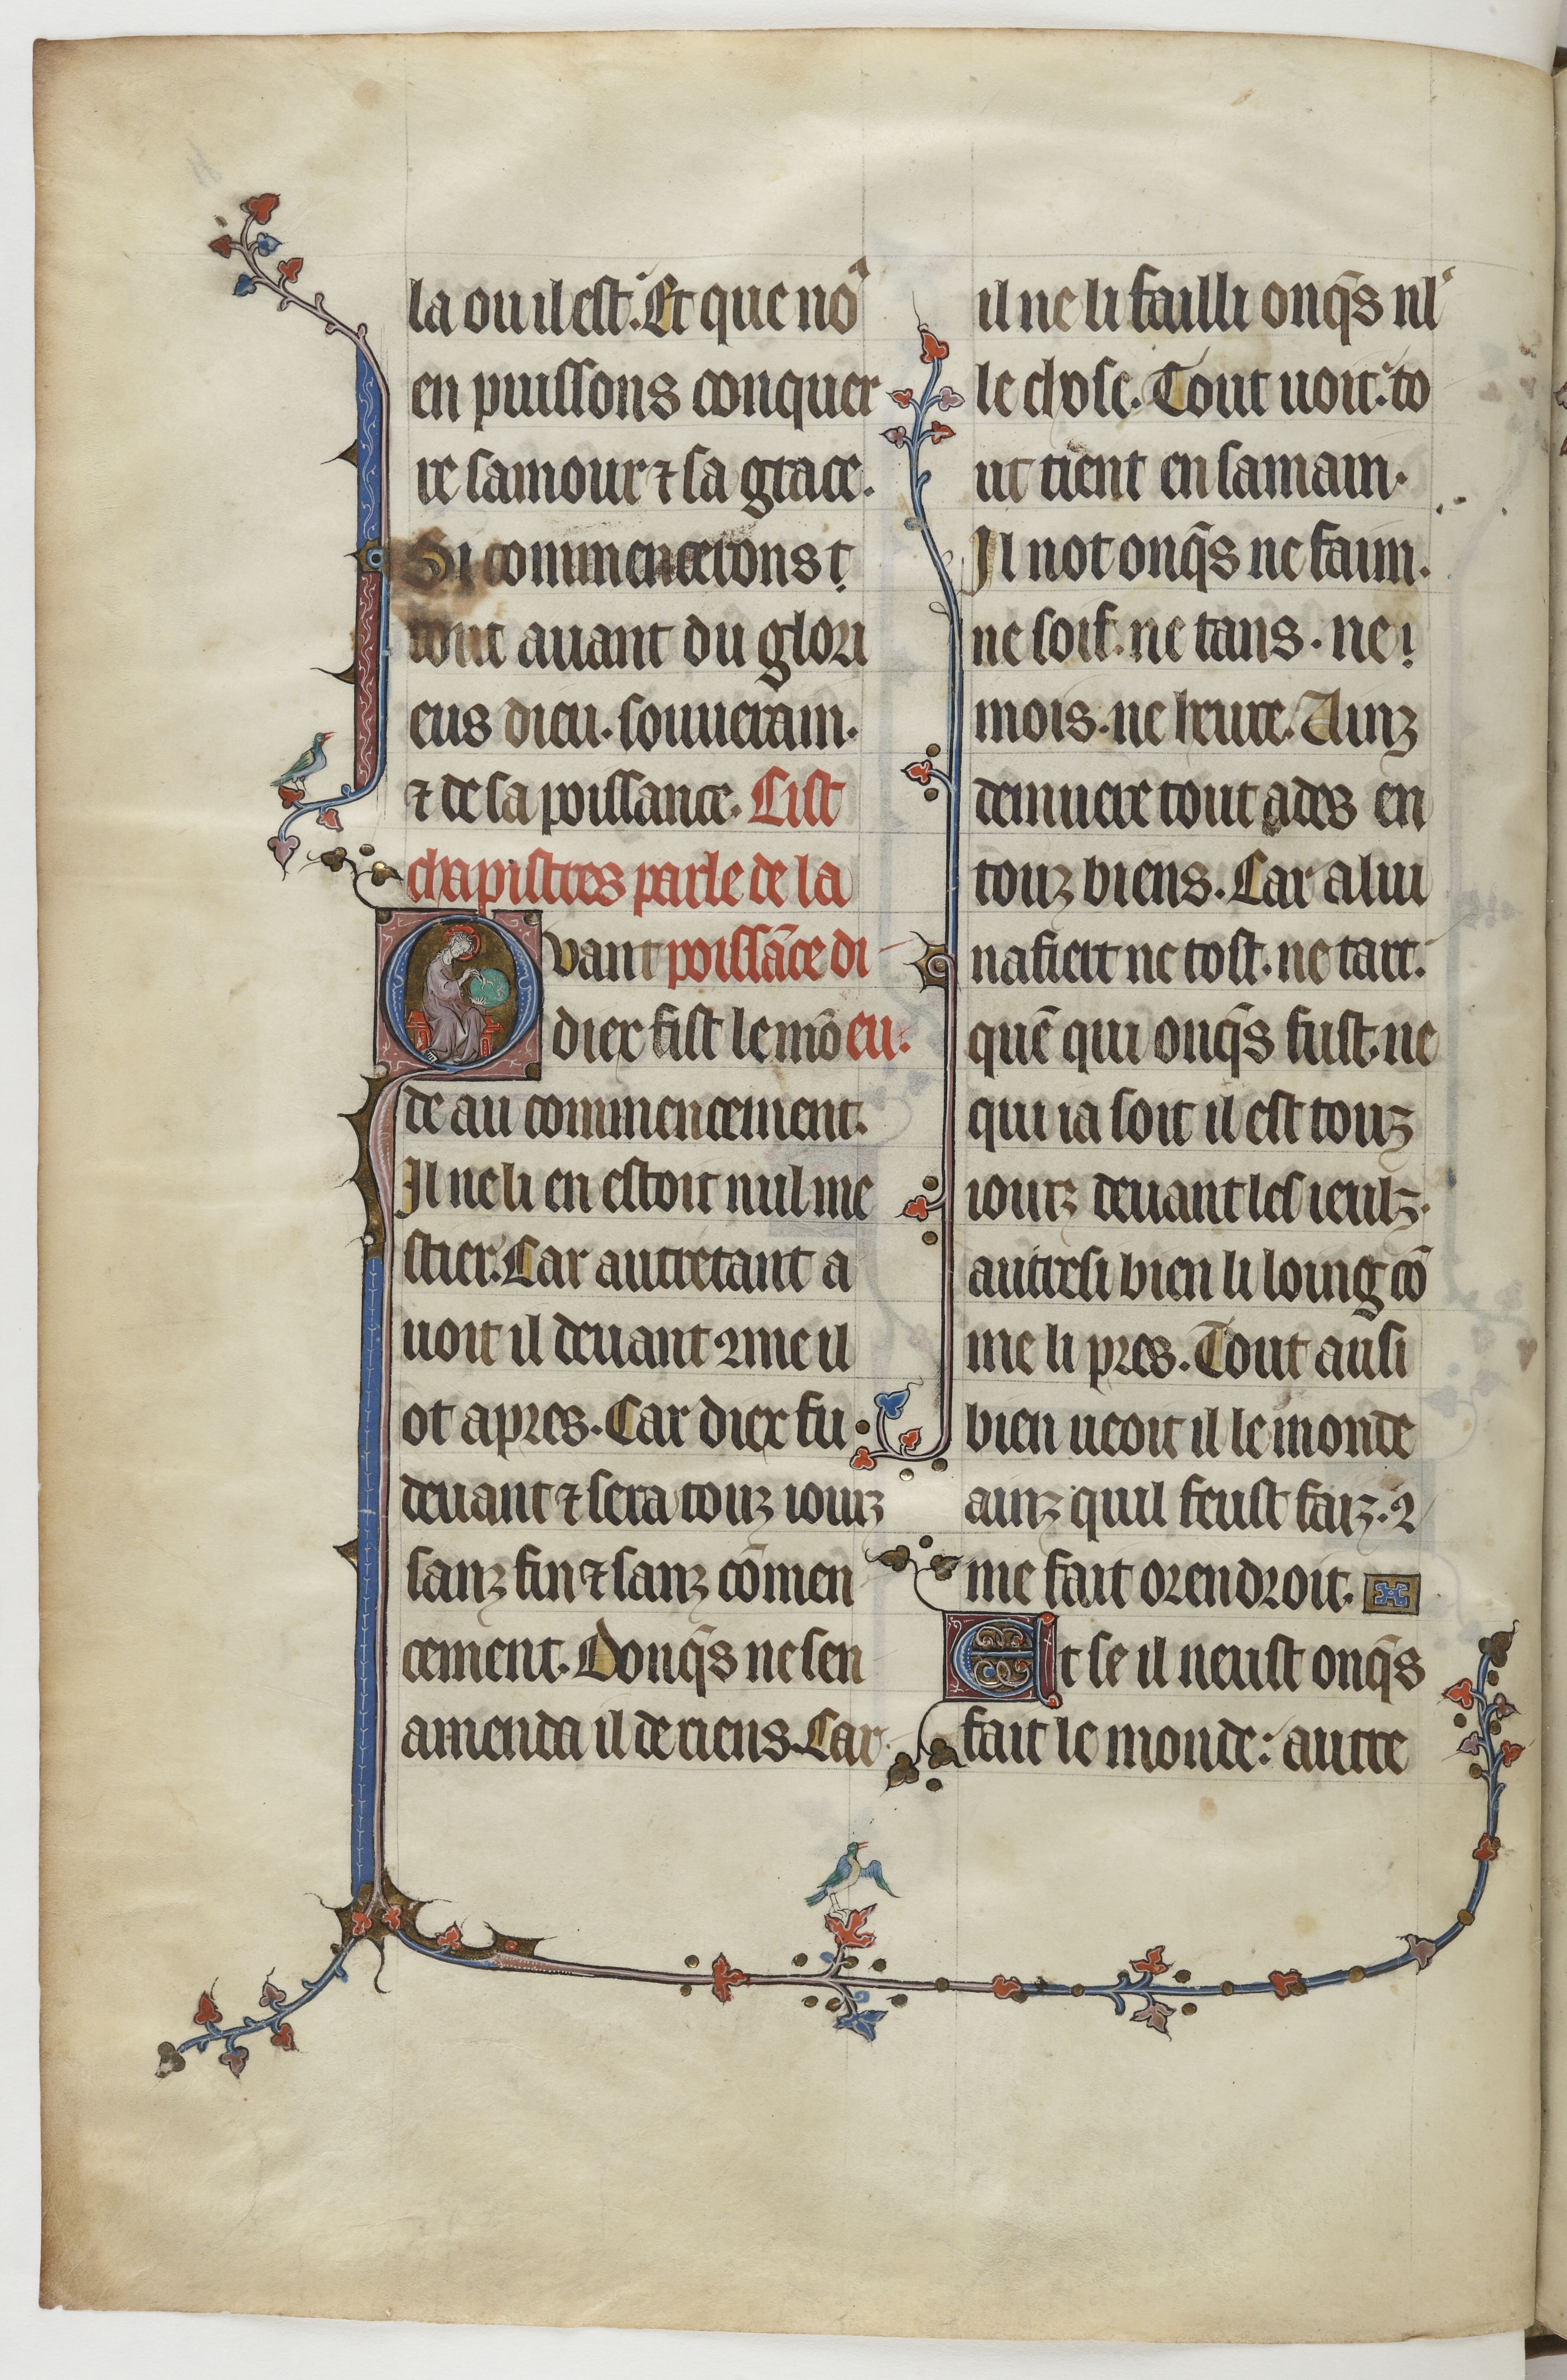 la ou il est. Et que noꝰ
en puissons conquer
re samour ⁊ sa grace.
Si commencerons t
tout auant du glori
eus dieu. souuerain.
⁊ de sa poissance. Cist
chapistres parle de la
Quant poissāce di
diex fist le mō eu.
de au commencement.
Il ne li en estoit nul me
stier. Car autretant a
uoit il deuant ꝯme il
ot apres. Car diex fu
deuant ⁊ sera touz iourz
sanz fin ⁊ sanz cōmen
cement. Donq̄s ne sen
amenda il de riens. Car
il ne li failli onq̄s nl
le chose. Tout uoit: to
ut tient en sa main.
Il not onq̄s ne faim.
ne soif. ne tans. ne
mois. ne heure. Ainz
demuere tout ades en
touz biens. Car a lui
nafiert ne tost. ne tart.
quē qui onq̄s fust. ne
qui ia soit il est touz
iourz deuant les ieulz.
autresi bien li loing cō
me li pres. Tout ausi
bien ueoit il le monde
ainz quil feust faiz. ꝯ
me fait orendroit.
Et se il neust onq̄s
fait le monde: autre